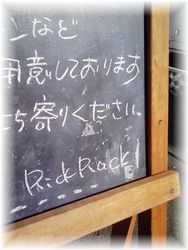 ンなど
用意しております
立ち寄りください。
RickRack